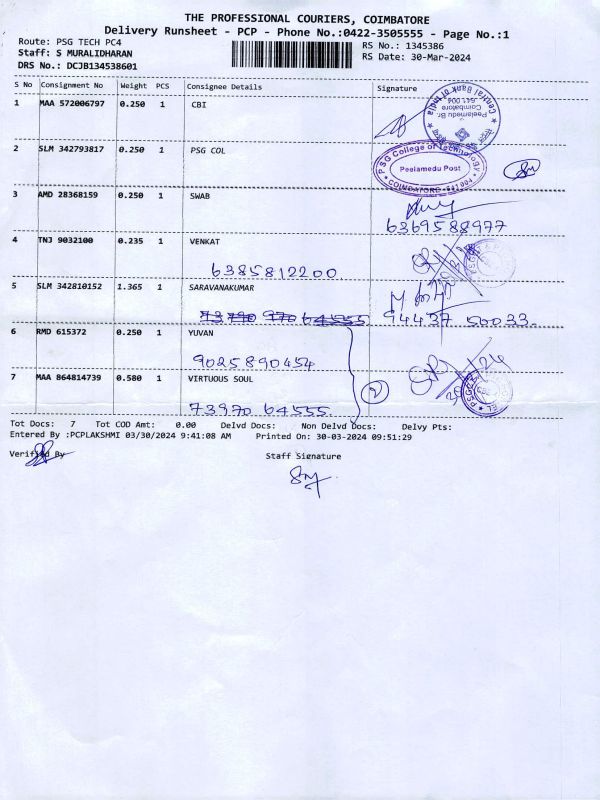 THE PROFESSIONAL COURIERS, COIMBATORE
Delivery Runsheet - PCP - Phone No.:0422-3505555 - Page No.:1
Route: PSG TECH PC4
RS No.: 1345386
Staff: S MURALIDHARAN
RS Date: 30-Mar-2024
DRS No.: DCJB134538601
S No Consignment No Weight PCS Consignee Details Signature
1 MAA 572006797 0.250 1 CBI
Central Bank of India
Peelamedu Br.
Coimbatore
641 004
2 SLM 342793817 0.250 1 PSG COL
PSG College of Technology
Peelamedu Post
COIMBATORE-641004
3 AMD 28368159 0.250 1 SWAB
6369588977
4 TNJ 9032100 0.235 1 VENKAT
6385812200
5 SLM 342810152 1.365 1 SARAVANAKUMAR
94437 50033
6 RMD 615372 0.250 1 YUVAN
9025890454
7 MAA 864814739 0.580 1 VIRTUOUS SOUL
2
73970 64555
Tot Docs: 7 Tot COD Amt: 0.00 Delvd Docs: Non Delvd Docs: Delvy Pts:
Entered By :PCPLAKSHMI 03/30/2024 9:41:08 AM Printed On: 30-03-2024 09:51:29
Verified By Staff Signature